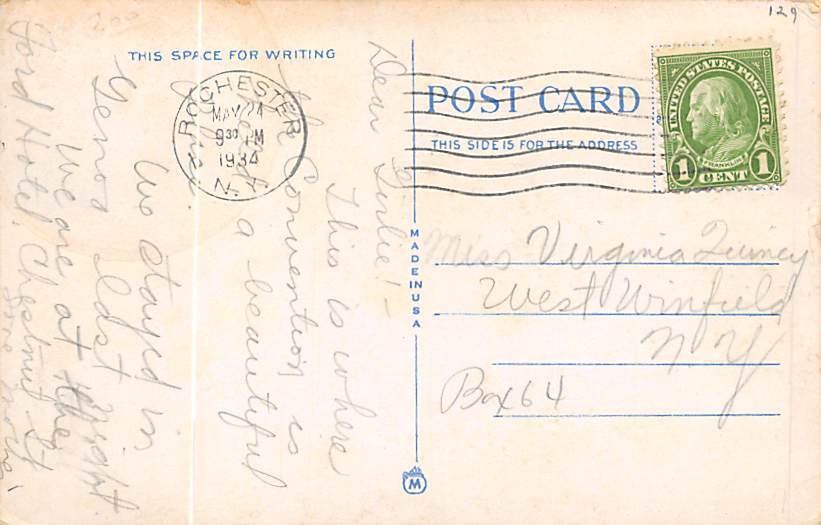 129
200
THIS SPACE FOR WRITING
POST CARD
THIS SIDE IS FOR THE ADDRESS
UNITED STATES POSTAGE
FRANKLIN
1 CENT 1
ROCHESTER
MAY 24
930 PM
1934
N.Y.
MADE IN USA
M
Dear Girlie! -
This is where
the Convention is
and a beautiful
place.
We stayed in
Geneva last night.
We are at the
Ford Hotel. Chestnut St
Miss Virginia Quincy
West Winfield
N Y
Box 64